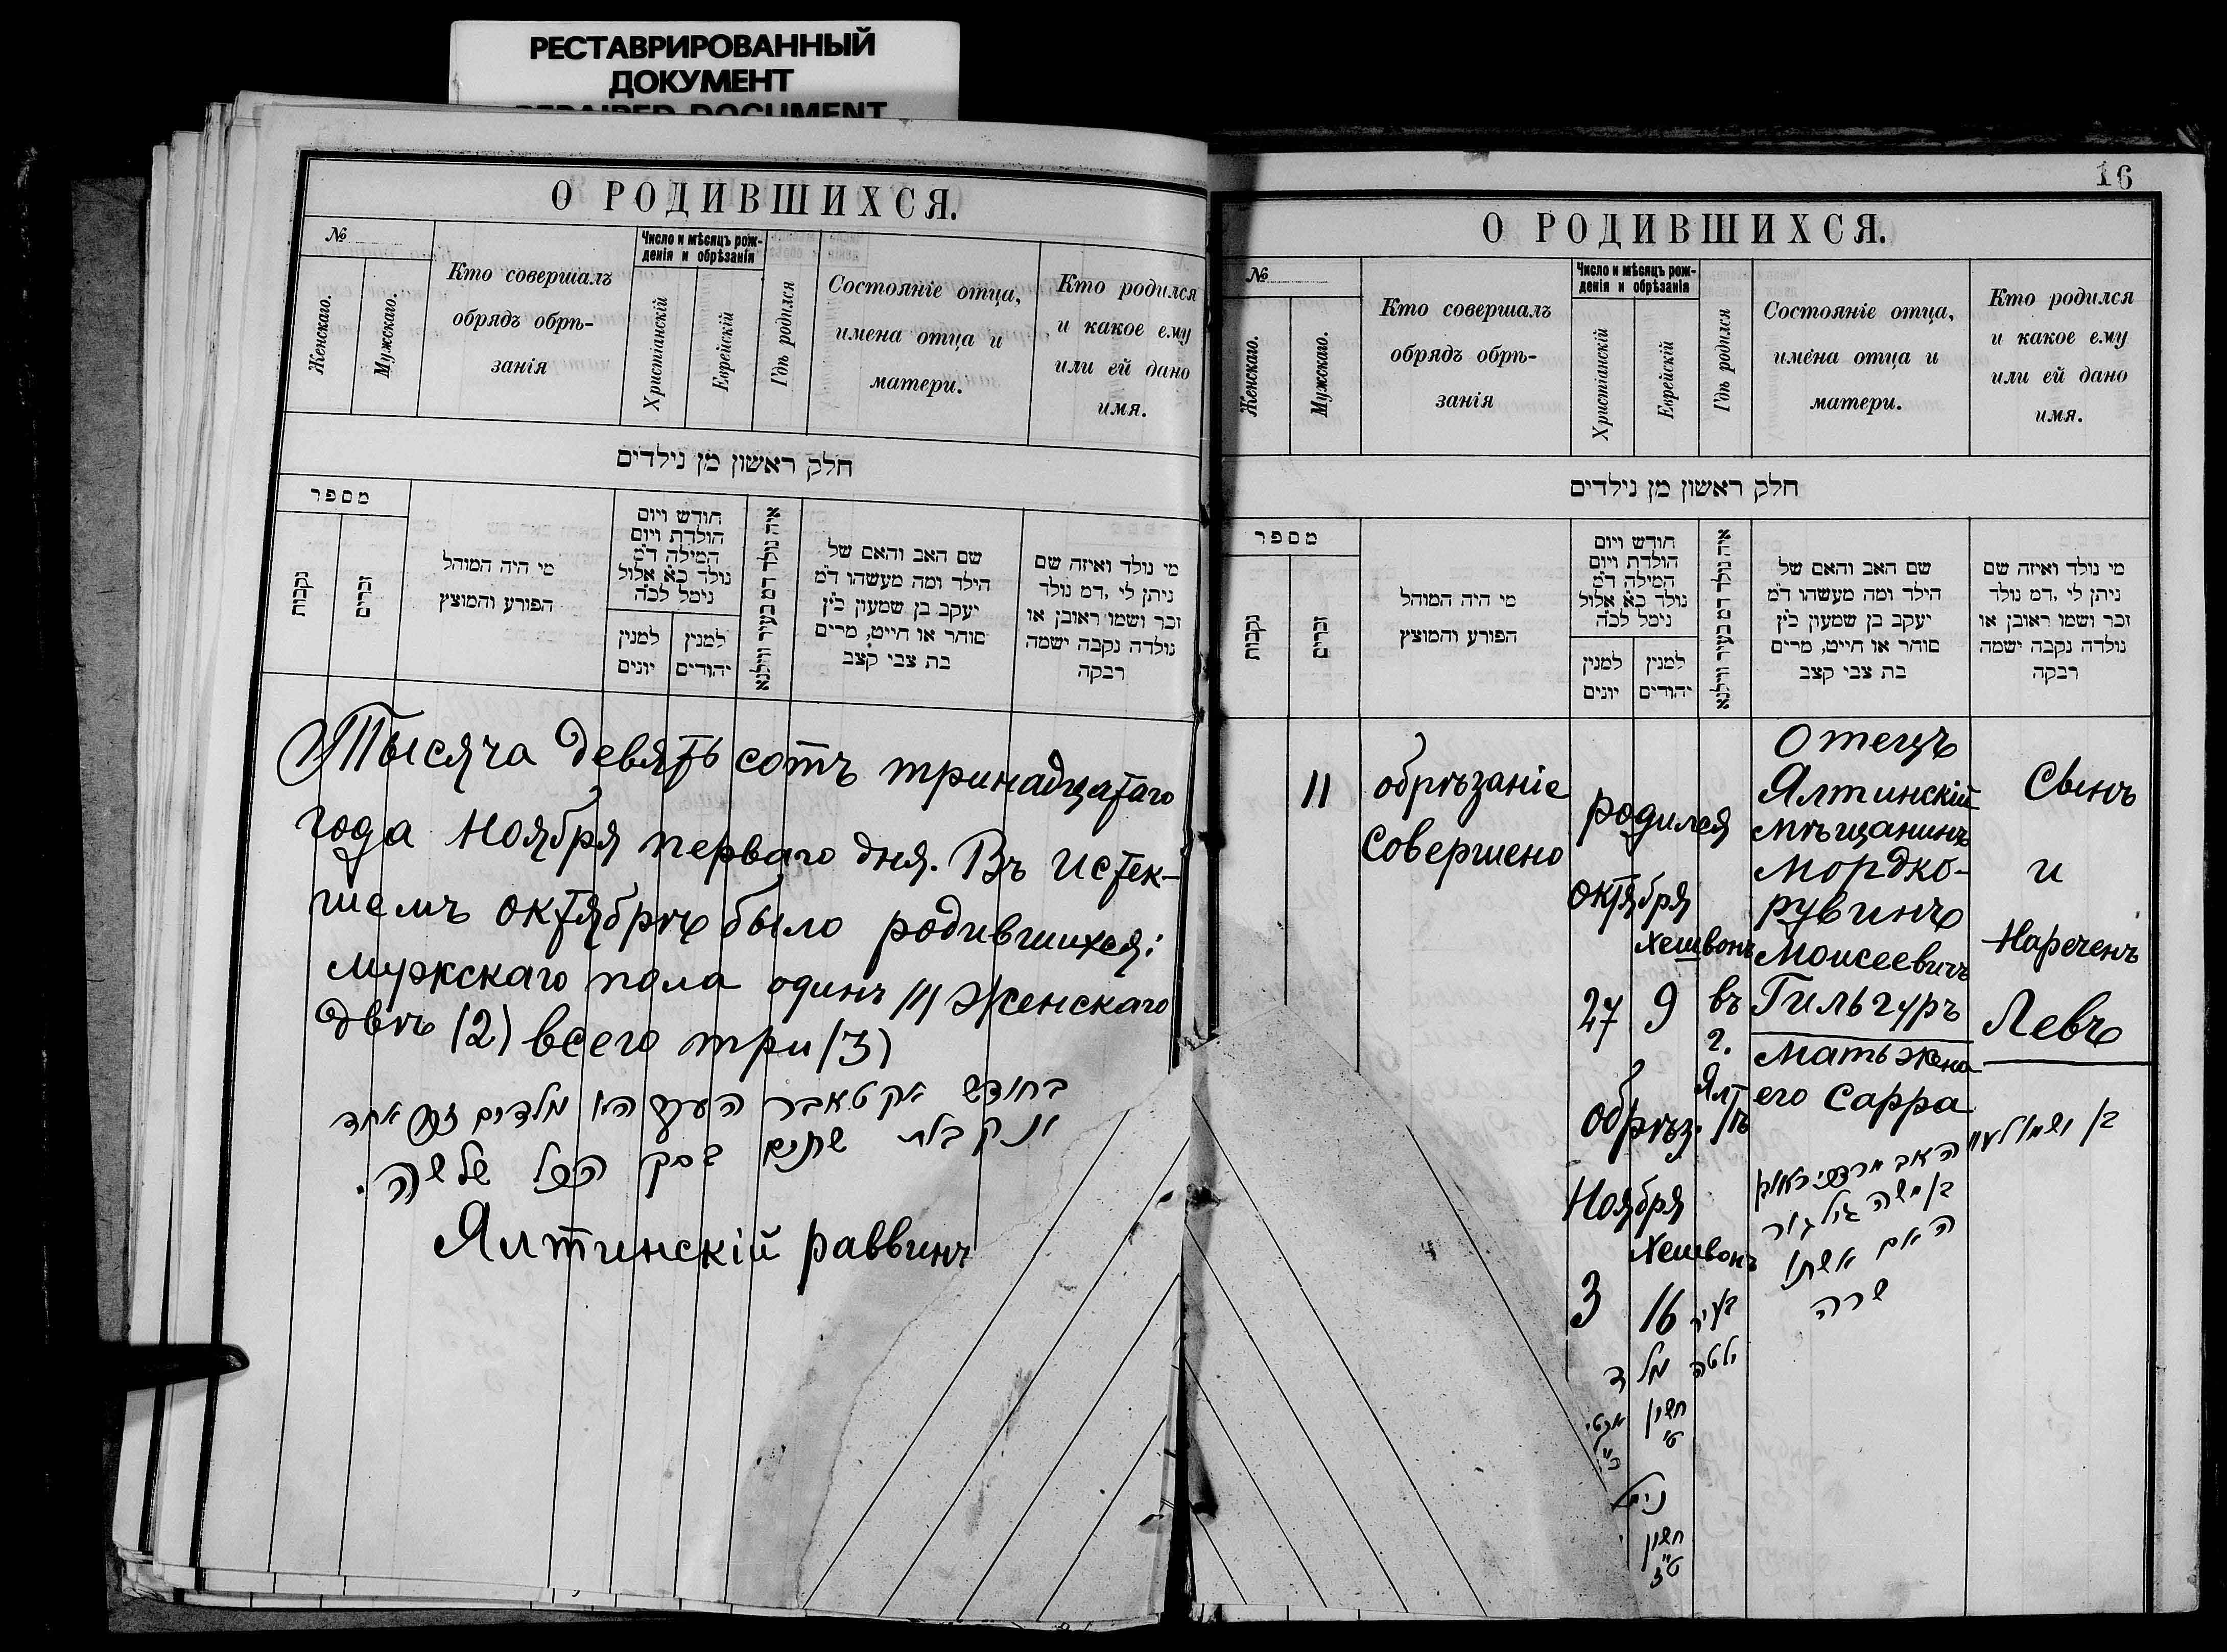 РЕСТАВРИРОВАННЫЙ
ДОКУМЕНТ
REPAIRED DOCUMENT
О РОДИВШИХСЯ.
№
Женскаго.
Мужскаго.
Кто совершалъ
обрядъ обрѣ-
занія
Число и мѣсяцъ рож-
денія и обрѣзанія
Христіанскій
Еврейскій
Гдѣ родился
Состояніе отца,
имена отца и
матери.
Кто родился
и какое ему
или ей дано
имя.
חלק ראשון מן נילדים
מספר
נקבות
זכרים
מי היה המוהל
הפורע והמוצץ
חודש ויום
הולדת ויום
המילה ד״מ
נולד כ״א אלול
נימל לכ״ה
למנין
יונים
למנין
יהודים
איה נולד דמ בעיר ווילנא
שם האב והאם של
הילד ומה מעשהו ד״מ
יעקב בן שמעון כ״ץ
סוחר או חייט, מרים
בת צבי קצב
מי נולד ואיזה שם
ניתן לי ,דמ נולד
זכר ושמו ראובן או
נולדה נקבה ישמה
רבקה
Тысяча девятьсотъ тринадцатаго
года Ноября перваго дня. Въ истек-
шемъ октябрѣ было родившихся:
мужскаго пола одинъ /1/ Женскаго
двѣ (2) всего три (3)
בחודש אקטאבר
שתים הכל שלשה.
Ялтинскій раввинъ
16
О РОДИВШИХСЯ.
№
Женскаго.
Мужскаго.
Кто совершалъ
обрядъ обрѣ-
занія
Число и мѣсяцъ рож-
денія и обрѣзанія
Христіанскій
Еврейскій
Гдѣ родился
Состояніе отца,
имена отца и
матери.
Кто родился
и какое ему
или ей дано
имя.
חלק ראשון מן נילדים
מספר
נקבות
זכרים
מי היה המוהל
הפורע והמוצץ
חודש ויום
הולדת ויום
המילה ד״מ
נולד כ״א אלול
נימל לכ״ה
למנין
יונים
למנין
יהודים
איה נולד דמ בעיר ווילנא
שם האב והאם של
הילד ומה מעשהו ד״מ
יעקב בן שמעון כ״ץ
סוחר או חייט, מרים
בת צבי קצב
מי נולד ואיזה שם
ניתן לי ,דמ נולד
זכר ושמו ראובן או
נולדה נקבה ישמה
רבקה
11
обрѣзаніе
совершено
родился
октября
Хешвонъ
27
9
обрѣз.
Ноября
Хешвонъ
3
16
נולד
חשון
ט׳
נימל
חשון
ט״ז
въ
г.
Ялт
ѣ
בעיר
ילטה
Отецъ
Ялтинскій
мѣщанинъ
Мордко-
рувинъ
Моисеевичъ
Гильгуръ
Мать жена
его Сарра
האב מרדכי ראובן
בן משה גילגור
האם אשתו
שרה
Сынъ
и
Нареченъ
Левъ
בן ושמו